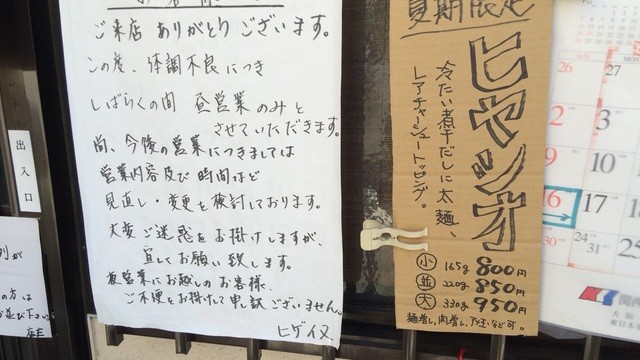 ご来店 ありがとうございます。
この度、体調不良につき
しばらくの間 昼営業のみと
させていただきます。
尚、今後の営業につきましては
営業内容及び時間など
見直し・変更を検討しております。
大変ご迷惑をお掛けしますが、
宜しくお願い致します。
夜営業にお越しのお客様、
ご不便をお掛けして申し訳ございません。
ヒゲイヌ
夏期限定
ヒヤシオ
冷たい煮干だしに太麺、
レアチャーシュートッピング。
小 165g 800円
並 220g 850円
大 330g 950円
麺増し、肉増し、
出入口
列が
の方は
お並び下さい
店主
26
27
2
3
9
10
16
17
23
24
30
31
25